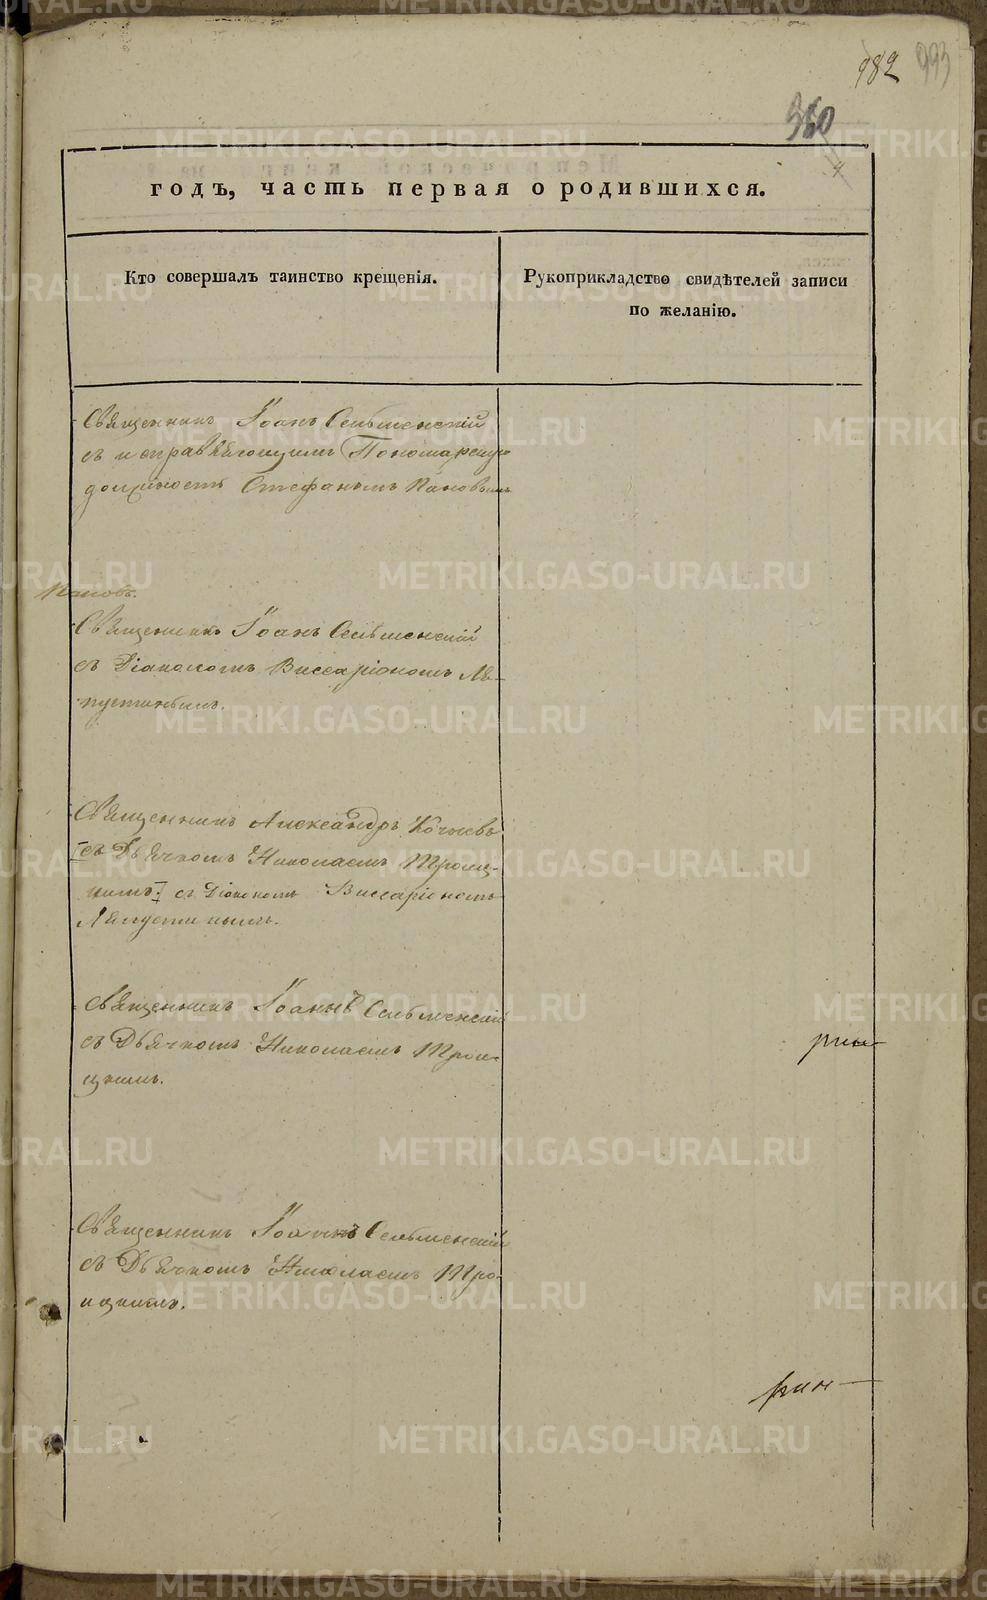 982 993
годъ, часть первая о родившихся.
Кто совершалъ таинство крещенія.
Рукоприкладство свидѣтелей записи
по желанію.
Священникъ Іоанъ Сельменскій
съ исправляющимъ Пономарскую
должность Стефаномъ Пановымъ
Священникъ Іоанъ Сельменскій
съ Діакономъ Виссаріономъ Ля-
пустинымъ.
Священникъ Александръ
съ Дьячкомъ Николаемъ Троиц-
кимъ съ Діакономъ Виссаріономъ
Ляпустинымъ.
Священникъ Іоаннъ Сельменскій
съ Дьячкомъ Николаемъ Трои-
цкимъ.
Священникъ Іоаннъ Сельменскій
съ Дьячкомъ Николаемъ Тро-
ицкимъ.
METRIKI.GASO-URAL.RU